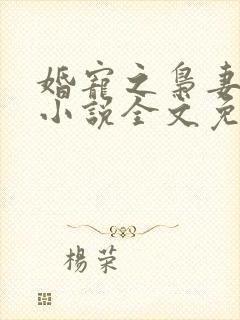 婚寵之梟妻
小說全文免
楊荣